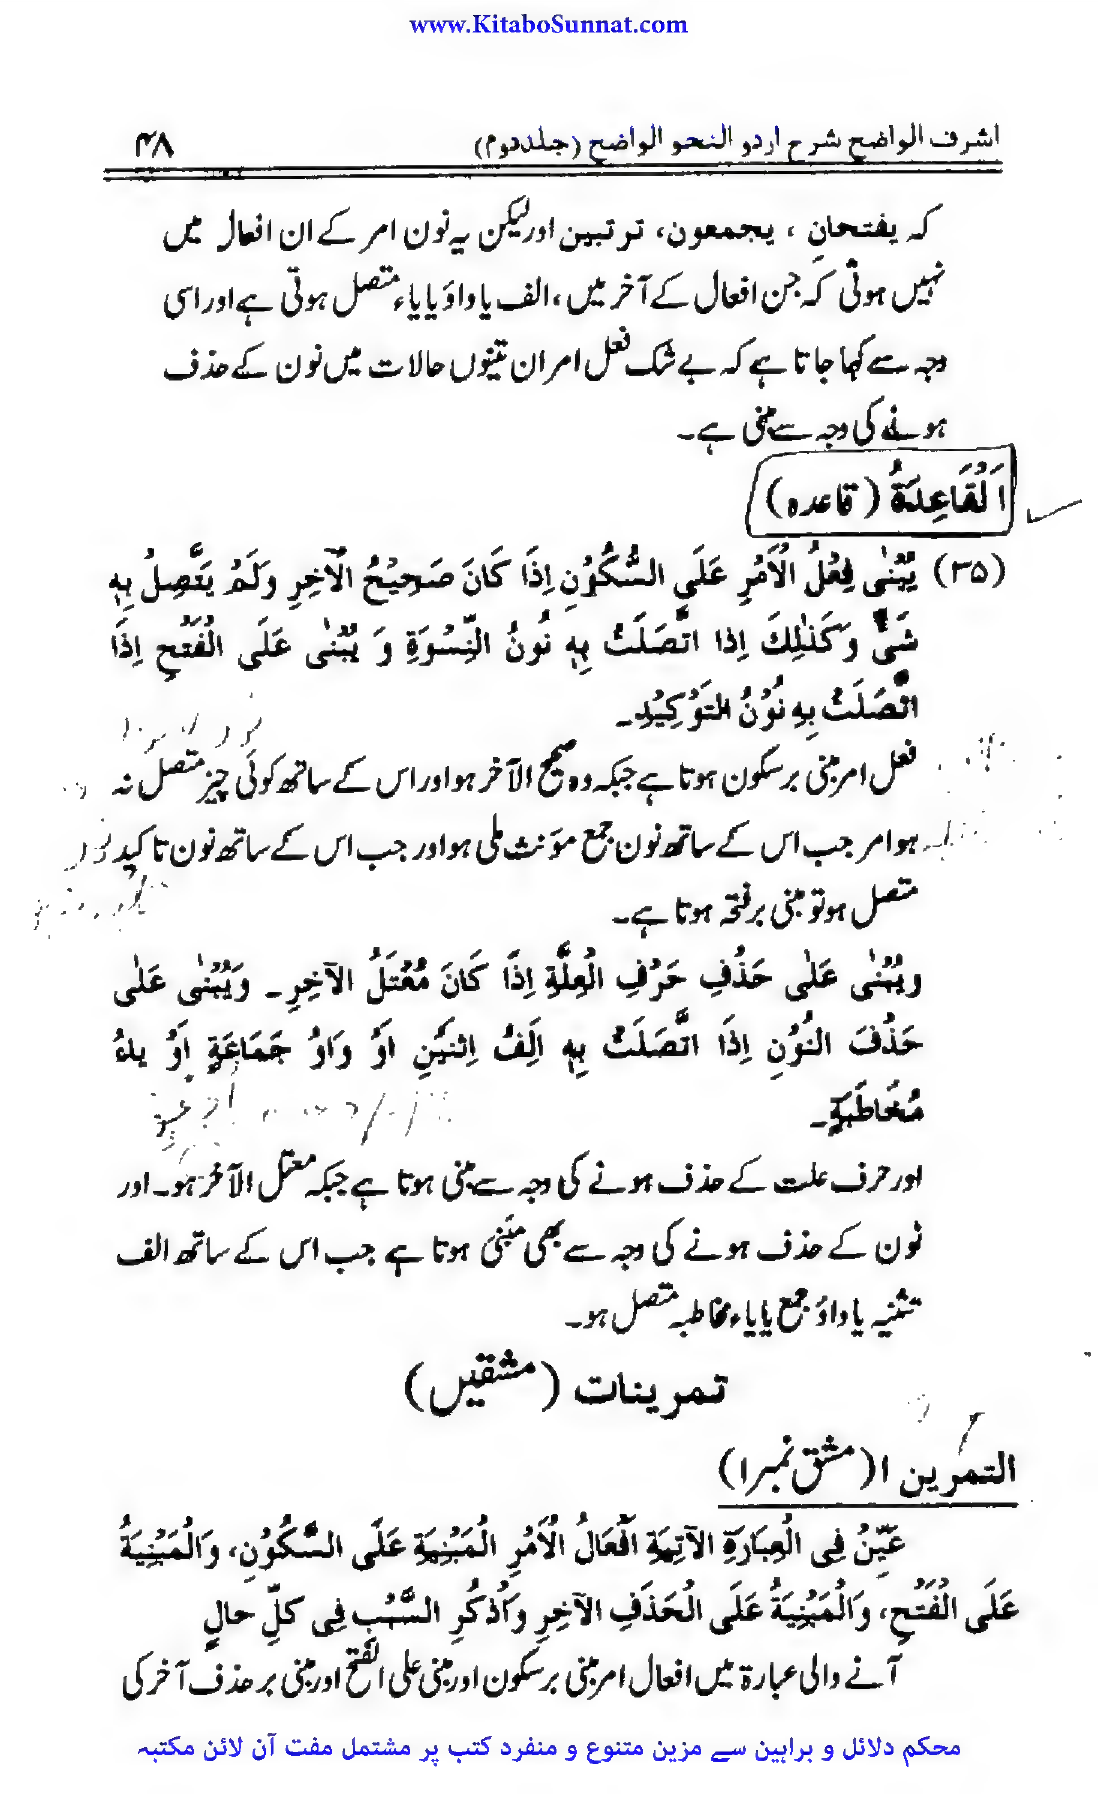 www.KitaboSunnat.com
اشرف الواضح شرح اردو النحو الواضح (جلد دوم) ۴۸
کہ یفتحانِ ، یجمعون، ترتبین اور لیکن یہ نون امر کے ان افعال میں
نہیں ہوتی کہ جن افعال کے آخر میں، الف یا واؤ یا یاء متصل ہوتی ہے اور اسی
وجہ سے کہا جاتا ہے کہ بے شک فعل امر ان تینوں حالات میں نون کے حذف
ہونے کی وجہ سے مبنی ہے۔
اَلْقَاعِدَةُ (قاعدہ)
(۳۵) یُبْنٰی فِعْلُ الْاَمْرِ عَلَی السُّکُوْنِ اِذَا کَانَ صَحِیْحُ الْآخِرِ وَلَمْ یَتَّصِلُ بِهٖ
شَیٌٔ وَکَذٰلِكَ اِذَا اتَّصَلَتْ بِهٖ نُونُ النِّسْوَةِ وَ یُبْنٰی عَلَی الْفَتْحِ اِذَا
اتَّصَلَتْ بِهٖ نُوْنُ التَوْکِیْدِ۔
فعل امر مبنی بر سکون ہوتا ہے جبکہ وہ صحیح الآخر ہو اور اس کے ساتھ کوئی چیز متصل نہ
ہو امر جب اس کے ساتھ نون جمع مؤنث ملی ہو اور جب اس کے ساتھ نون تاکید
متصل ہو تو مبنی بر فتحہ ہوتا ہے۔
وَیُبْنٰی عَلٰی حَذْفِ حَرْفِ الْعِلَّةِ اِذَا کَانَ مُعْتَلُ الآخِرِ۔ وَیُبْنٰی عَلٰی
حَذْفَ النُوْنِ اِذَا اتَّصَلَتْ بِهٖ اَلِفُ اِثْنَیْنِ اَوْ وَاوُ جَمَاعَةٍ اَوْ یاءُ
مُخَاطَبَةٍ۔
اور حرف علت کے حذف ہونے کی وجہ سے مبنی ہوتا ہے جبکہ معتل الآخر ہو۔ اور
نون کے حذف ہونے کی وجہ سے بھی مبنی ہوتا ہے جب اس کے ساتھ الف
تثنیہ یا واؤ جمع یا یاء مخاطبہ متصل ہو۔
تمرینات (مشقیں)
التمرین ۱ (مشق نمبر ۱)
عَیِّنْ فِی الْعِبَارَةِ الآتِیَةِ اَفْعَالُ الْاَمْرِ الْمَبْنِیَةِ عَلَی السُّکُوْنِ، وَالْمَبْنِیَةُ
عَلَی الْفَتْحِ، وَالْمَبْنِیَةُ عَلَی الْحَذَفِ الآخِرِ وَاذْکُرِ السَّبَبِ فِی کلِّ حالٍ
آنے والی عبارۃ میں افعال امر مبنی بر سکون اور مبنی علی الفتح اور مبنی بر حذف آخر کی
محکم دلائل و براہین سے مزین متنوع و منفرد کتب پر مشتمل مفت آن لائن مکتبہ